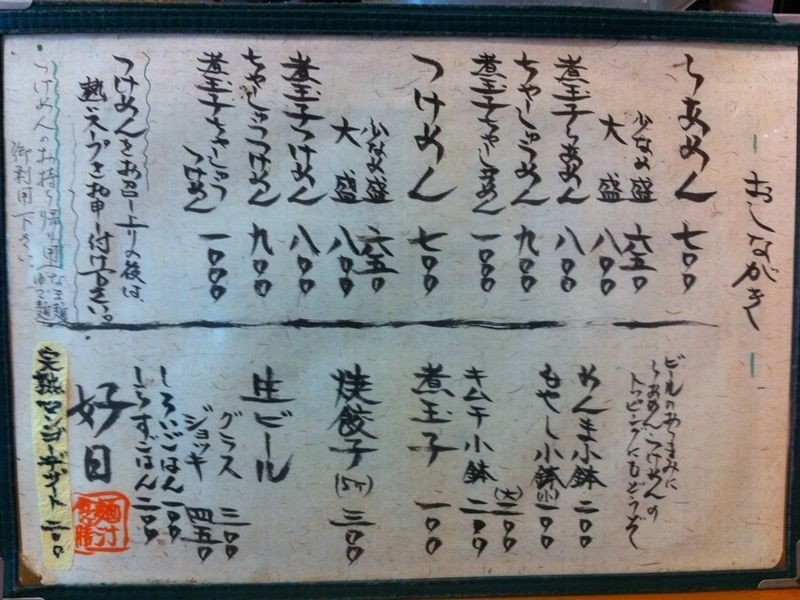 おしながき
らあめん 七〇〇
少なめ盛 六五〇
大盛 八〇〇
煮玉子らあめん 八〇〇
ちゃーしゅうめん 九〇〇
煮玉子ちゃーしゅうめん 一〇〇〇
つけめん 七〇〇
少なめ盛 六五〇
大盛 八〇〇
煮玉子つけめん 八〇〇
ちゃーしゅうつけめん 九〇〇
煮玉子ちゃーしゅうつけめん 一〇〇〇
つけめんをお召し上りの後は、
熱いスープをお申し付け下さい。
つけめんのお持ち帰り用
御利用下さい。
ビールのおつまみに
らあめんつけめんの
トッピングにもどうぞ
めんま小鉢 二〇〇
もやし小鉢(小) 一〇〇
(大) 二〇〇
キムチ小鉢 二〇〇
煮玉子 一〇〇
焼餃子(5ヶ) 三〇〇
生ビール
グラス 三〇〇
ジョッキ 四五〇
しろいごはん 一〇〇
しらすごはん 二〇〇
好日
完熟マンゴーデザート 二〇〇